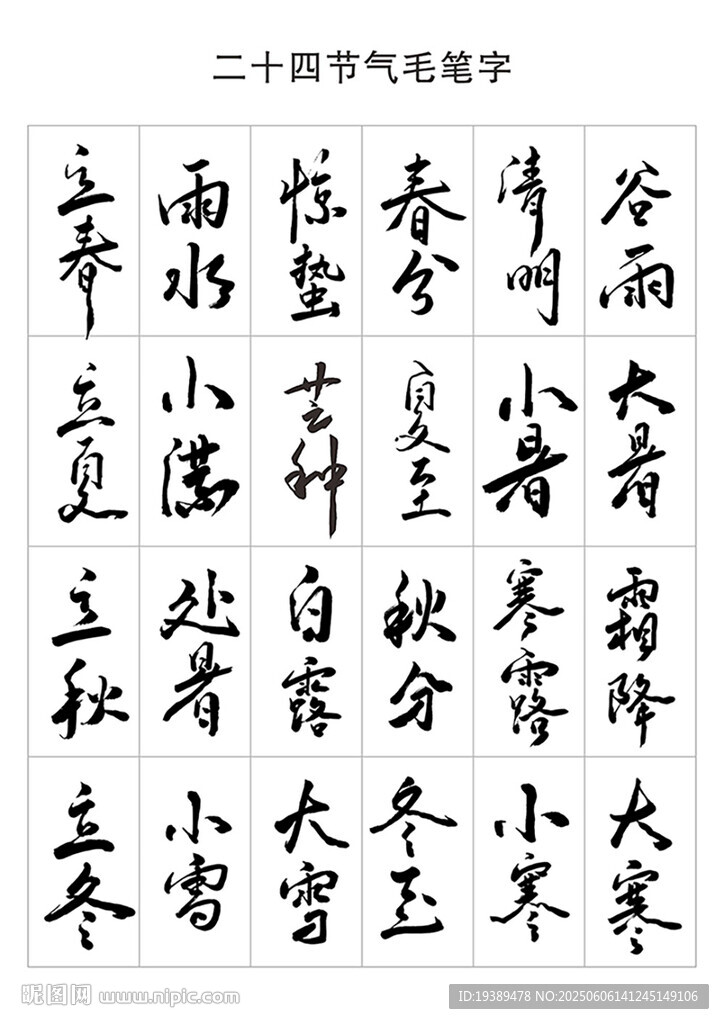 二十四节气毛笔字
立春 雨水 惊蛰 春分 清明 谷雨
立夏 小满 芒种 夏至 小暑 大暑
立秋 处暑 白露 秋分 寒露 霜降
立冬 小雪 大雪 冬至 小寒 大寒
昵图网 www.nipic.com
ID:19389478 NO:20250606141245149106